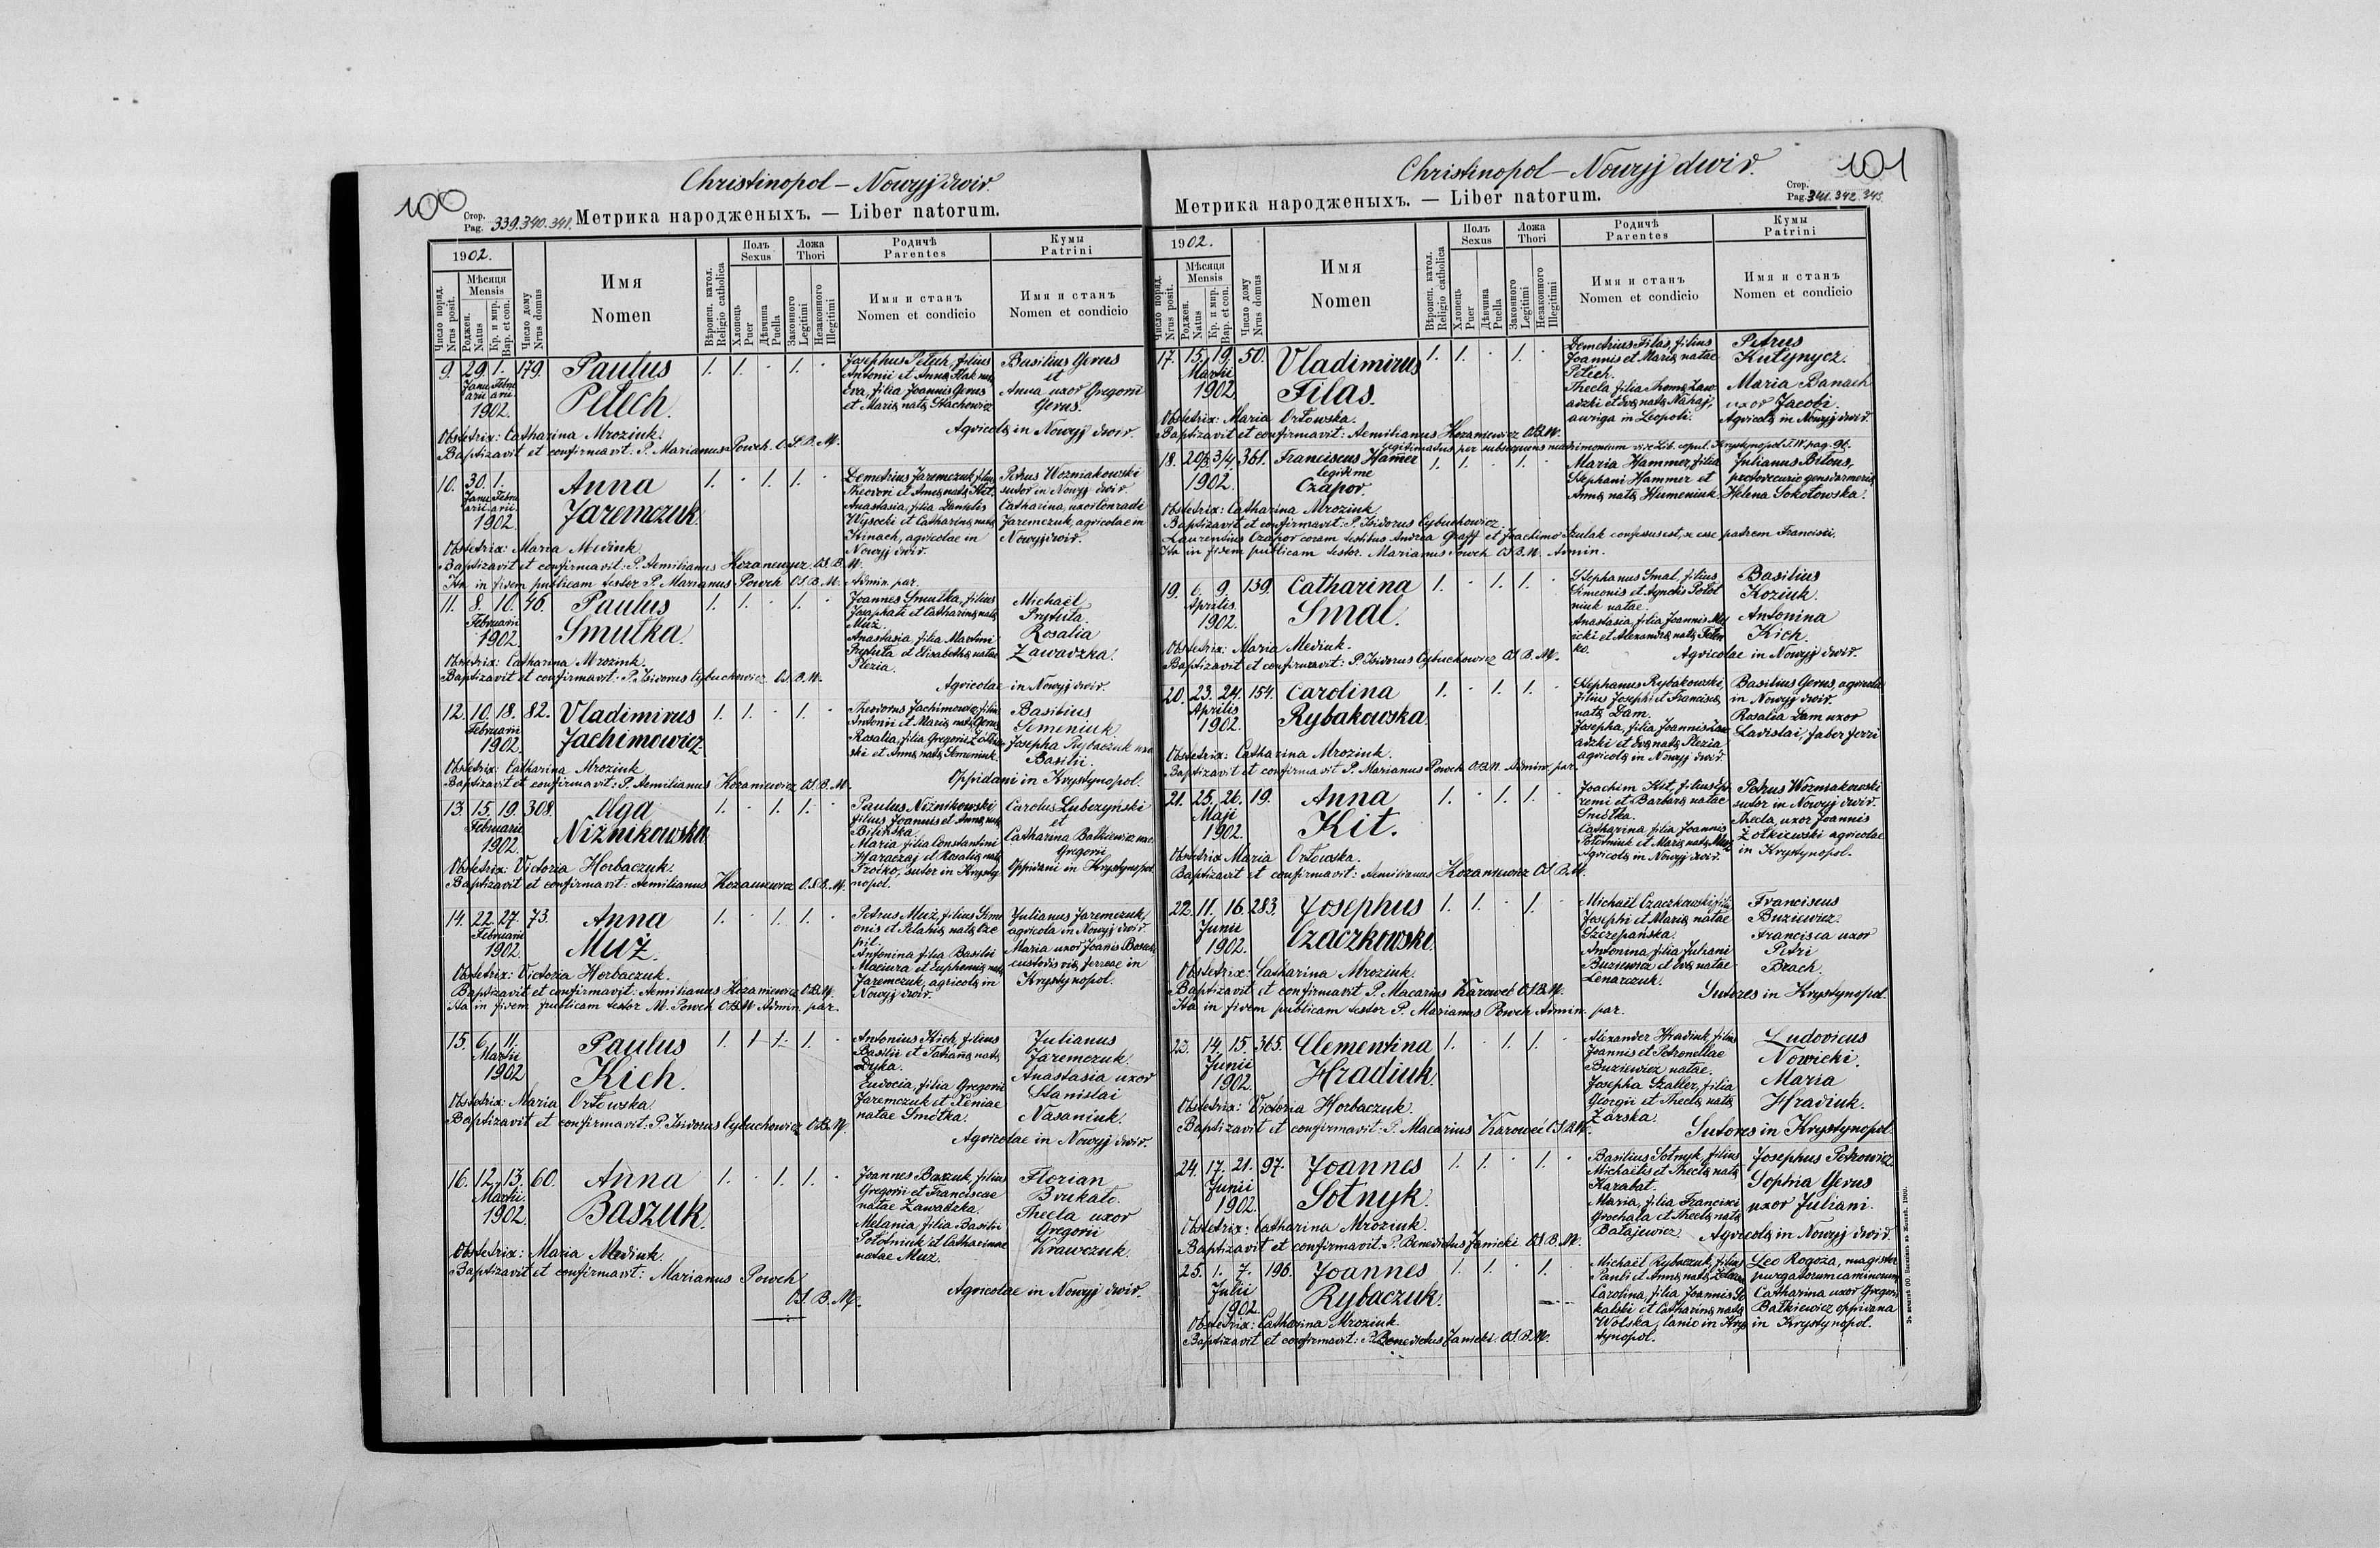 100
Christinopol – Nowyj dwir.
Стор.
Pag. 339.340.341.
Метрика народженыхъ. — Liber natorum.
1902.
Число поряд.
Nrus posit.
Мѣсяця
Mensis
Роджен.
Natus
Кр. и мир.
Bap. et con.
Число дому
Nrus domus
Имя
Nomen
Вѣроисп. катол.
Religio catholica
Полъ
Sexus
Хлопець
Puer
Дѣвчина
Puella
Ложа
Thori
Законного
Legitimi
Незаконного
Illegitimi
Родичѣ
Parentes
Имя и станъ
Nomen et condicio
Кумы
Patrini
Имя и станъ
Nomen et condicio
9. 29. 1. 179. Paulus 1. 1. · 1. ·
Janu Febru
arii arii
1902. Petech.
Josephus Petech, filius
Antonii et Annae Hak nat.
Eva, filia Joannis Gerus
et Mariae natae Stachewicz
Basilius Gerus
et
Anna uxor Gregorii
Gerus.
Agricolae in Nowyj dwir.
Obstetrix: Catharina Mroziuk.
Baptizavit et confirmavit: P. Marianus Powch O.S.B.M.
10. 30. 1. Anna 1. · 1. 1. ·
Janu Febru
arii arii
1902. Jaremczuk.
Demetrius Jaremczuk, filius
Theodori et Annae natae Kit.
Anastasia, filia Danielis
Wysocki et Catharinae natae
Kinach, agricolae in
Nowyj dwir.
Petrus Wozniakowski
sutor in Nowyj dwir.
Catharina, uxor Conradi
Jaremczuk, agricolae in
Nowyj dwir.
Obstetrix: Maria Mediuk
Baptizavit et confirmavit: P. Aemilianus Kozanewycz O.S.B.M.
Ita in fidem publicam testor P. Marianus Powch O.S.B.M. Admin. par.
11. 8. 10. 46. Paulus 1. 1. · 1. ·
Februarii
1902. Smutka.
Joannes Smutka, filius
Josaphati et Catharinae natae
Muż.
Anastasia, filia Martini
Prytuta et Elisabethae natae
Plezia.
Michaël
Prytuta.
Rosalia
Zawadzka.
Agricolae in Nowyj dwir.
Obstetrix: Catharina Mroziuk.
Baptizavit et confirmavit: P. Isidorus Cybuchowicz O.S.B.M.
12. 10. 18. 82. Vladimirus 1. 1. · 1. ·
Februarii
1902. Jachimowicz
Theodorus Jachimowicz, filius
Antonii et Mariae natae Gerus
Rosalia, filia Gregorii
ski et Annae natae Semeniuk.
Basilius
Semeniuk.
Josepha Rybaczuk uxor
Basilii.
Oppidani in Krystynopol.
Obstetrix: Catharina Mroziuk
Baptizavit et confirmavit: P. Aemilianus Kozaniewicz O.S.B.M.
13. 15. 19. 308. Olga 1. · 1. 1. ·
Februarii
1902. Niżnikowska
Paulus Niżnikowski
filius Joannis et Annae natae
Bilińska.
Maria filia Constantini
Haraczaj et Rosaliae natae
Frojko, sutor in Krysty
nopol.
Carolus Lubczyński
et
Catharina Batkiewicz uxor
Gregorii
Oppidani in Krystynopol.
Obstetrix: Victoria Horbaczuk.
Baptizavit et confirmavit: Aemilianus Kozaniewicz O.S.B.M.
14. 22. 27. 73. Anna 1. · 1. 1. ·
Februarii
1902. Muż.
Petrus Muż, filius Sime
onis et Pelahiae natae Cze
pil.
Antonina filia Basilii
Maciura et Euphemiae natae
Jaremczuk, agricolae in
Nowyj dwir.
Julianus Jaremczuk,
agricola in Nowyj dwir.
Maria uxor Joanis
custodis viae ferreae in
Krystynopol.
Obstetrix: Victoria Horbaczuk.
Baptizavit et confirmavit: Aemilianus Kozaniewicz O.S.B.M.
Ita in fidem publicam testor M. Powch O.S.B.M. Admin. par.
15. 6. 11. Paulus 1. 1. 1. 1. ·
Martii
1902 Kich.
Antonius Kich, filius
Basilii et Tatianae natae
Dyka.
Eudocia, filia Gregorii
Jaremczuk et Xeniae
natae Smotka.
Julianus
Jaremczuk.
Anastasia uxor
Stanislai
Nasaniuk.
Agricolae in Nowyj dwir.
Obstetrix: Maria Ortowska.
Baptizavit et confirmavit: P. Isidorus Cybuchowicz O.S.B.M.
16. 12. 13. 60. Anna 1. · 1. 1. ·
Martii
1902. Baszuk.
Joannes Baszuk, filius
Gregorii et Franciscae
natae Zawadzka.
Melania, filia Basilii
Potótniuk et Catharinae
natae Muż.
Florian
Brukato.
Thecla uxor
Gregorii
Krawczuk.
Agricolae in Nowyj dwir.
Obstetrix: Maria Mediuk.
Baptizavit et confirmavit: Marianus Powch
O.S.B.M.
101
Christinopol – Nowyj dwir.
Стор.
Pag. 341.342.343.
Метрика народженыхъ. — Liber natorum.
1902.
Число поряд.
Nrus posit.
Мѣсяця
Mensis
Роджен.
Natus
Кр. и мир.
Bap. et con.
Число дому
Nrus domus
Имя
Nomen
Вѣроисп. катол.
Religio catholica
Полъ
Sexus
Хлопець
Puer
Дѣвчина
Puella
Ложа
Thori
Законного
Legitimi
Незаконного
Illegitimi
Родичѣ
Parentes
Имя и станъ
Nomen et condicio
Кумы
Patrini
Имя и станъ
Nomen et condicio
17. 15. 19. 50. Vladimirus 1. 1. · 1. ·
Martii
1902. Filas.
Demetrius Filas, filius
Joannis et Mariae natae
Petech.
Thecla filia Thomae Zaw
adzki et Evae natae Nahaj,
auriga in Leopoli.
Petrus
Kutynycz.
Maria Banach
uxor Jacobi.
Agricolae in Nowyj dwir.
Obstetrix: Maria Ortowska.
Baptizavit et confirmavit: Aemilianus Kozaniewicz O.S.B.M.
legitimatus per subsequens matrimonium vide Lib. copul. Krystynopol T.IV. pag. 91.
18. 29/3. 3/4. 361. Franciscus Hammer 1. 1. · 1. ·
1902. legitime
Czapor.
Maria Hammer, filia
Stephani Hammer et
Annae natae Humeniuk.
Julianus Bitous,
protodecurio gensdarmeriae
Helena Sokołowska.
Obstetrix: Catharina Mroziuk
Baptizavit et confirmavit: P. Isidorus Cybuchowicz.
Laurentius Czapor coram testibus Andrea Graff et Joachimo Szulak confessus est, se esse patrem Francisci.
Ita in fidem publicam testor. Marianus Powch O.S.B.M. Admin.
19. 6. 9. 139. Catharina 1. · 1. 1. ·
Aprilis.
1902. Smal.
Stephanus Smal, filius
Simeonis et Agnetis Potot
niuk natae.
Anastasia, filia Joannis
icki et Alexandrae natae
ko.
Basilius
Koziuk.
Antonina
Kich.
Agricolae in Nowyj dwir.
Obstetrix: Maria Mediuk.
Baptizavit et confirmavit: P. Isidorus Cybuchowicz O.S.B.M.
20. 23. 24. 154. Carolina 1. · 1. 1. ·
Aprilis
1902. Rybakowska.
Stephanus Rybakowski,
filius Josephi et Franciscae
natae Dam.
Josepha, filia Joannis Zaw
adzki et Evae natae Plezia
agricolae in Nowyj dwir.
Basilius Gerus, agricola
in Nowyj dwir.
Rosalia Dam uxor
Ladislai, faber ferri
Obstetrix: Catharina Mroziuk.
Baptizavit et confirmavit P. Marianus Powch O.S.B.M. Admin. par.
21. 25. 26. 19. Anna 1. · 1. 1. ·
Maji
1902. Kit.
Joachim Kit, filius Eph
remi et Barbarae natae
Smotka.
Catharina, filia Joannis
Potótniuk et Mariae natae Muż
Agricolae in Nowyj dwir.
Petrus Wozniakowski
sutor in Nowyj dwir.
Thecla, uxor Joannis
Żołkiewski agricolae
in Krystynopol.
Obstetrix Maria Ortowska.
Baptizavit et confirmavit: Aemilianus Kozaniewicz O.S.B.M.
22. 11. 16. 283. Josephus 1. 1. · 1. ·
Junii
1902. Czaczkowski.
Michaël Czaczkowski, filius
Josephi et Mariae natae
Szczepańska.
Antonina, filia Juliani
Buziewicz et Evae natae
Lenarczuk.
Franciscus
Buziewicz.
Francisca uxor
Petri
Brach.
Sutores in Krystynopol.
Obstetrix: Catharina Mroziuk.
Baptizavit et confirmavit P. Macarius Karoweć O.S.B.M.
Ita in fidem publicam testor P. Marianus Powch Admin. par.
23. 14. 15. 365. Clementina 1. · 1. 1. ·
Junii
1902. Hradiuk.
Alexander Hradiuk, filius
Joannis et Petronellae
Buziewicz natae.
Josepha Szaller, filia
Georgii et Theclae natae
Żarska.
Ludovicus
Nowicki.
Maria
Hradiuk.
Sutores in Krystynopol.
Obstetrix: Victoria Horbaczuk.
Baptizavit et confirmavit: P. Macarius Karoweć O.S.B.M.
24. 17. 21. 97. Joannes 1. 1. · 1. ·
Junii
1902. Sotnyk.
Basilius Sotnyk, filius
Michaëlis et Theclae natae
Karabat.
Maria, filia Francisci
Grochala et Theclae natae
Batajewicz.
Josephus Petrowicz.
Sophia Gerus
uxor Juliani.
Agricolae in Nowyj dwir.
Obstetrix: Catharina Mroziuk.
Baptizavit et confirmavit: P. Benedictus Janicki O.S.B.M.
25. 1. 7. 196. Joannes 1. 1. · 1.
Julii
1902. Rybaczuk.
Michaël Rybaczuk, filius
Pauli et Annae natae
Carolina, filia Joannis So
kalski et Catharinae natae
Wolska, lanio in Krys
tynopol.
Leo Rogoża, magister
purgatorum caminorum
Catharina uxor Gregorii
Batkiewicz oppidana
in Krystynopol.
Obstetrix: Catharina Mroziuk
Baptizavit et confirmavit: P. Benedictus Janicki. O.S.B.M.